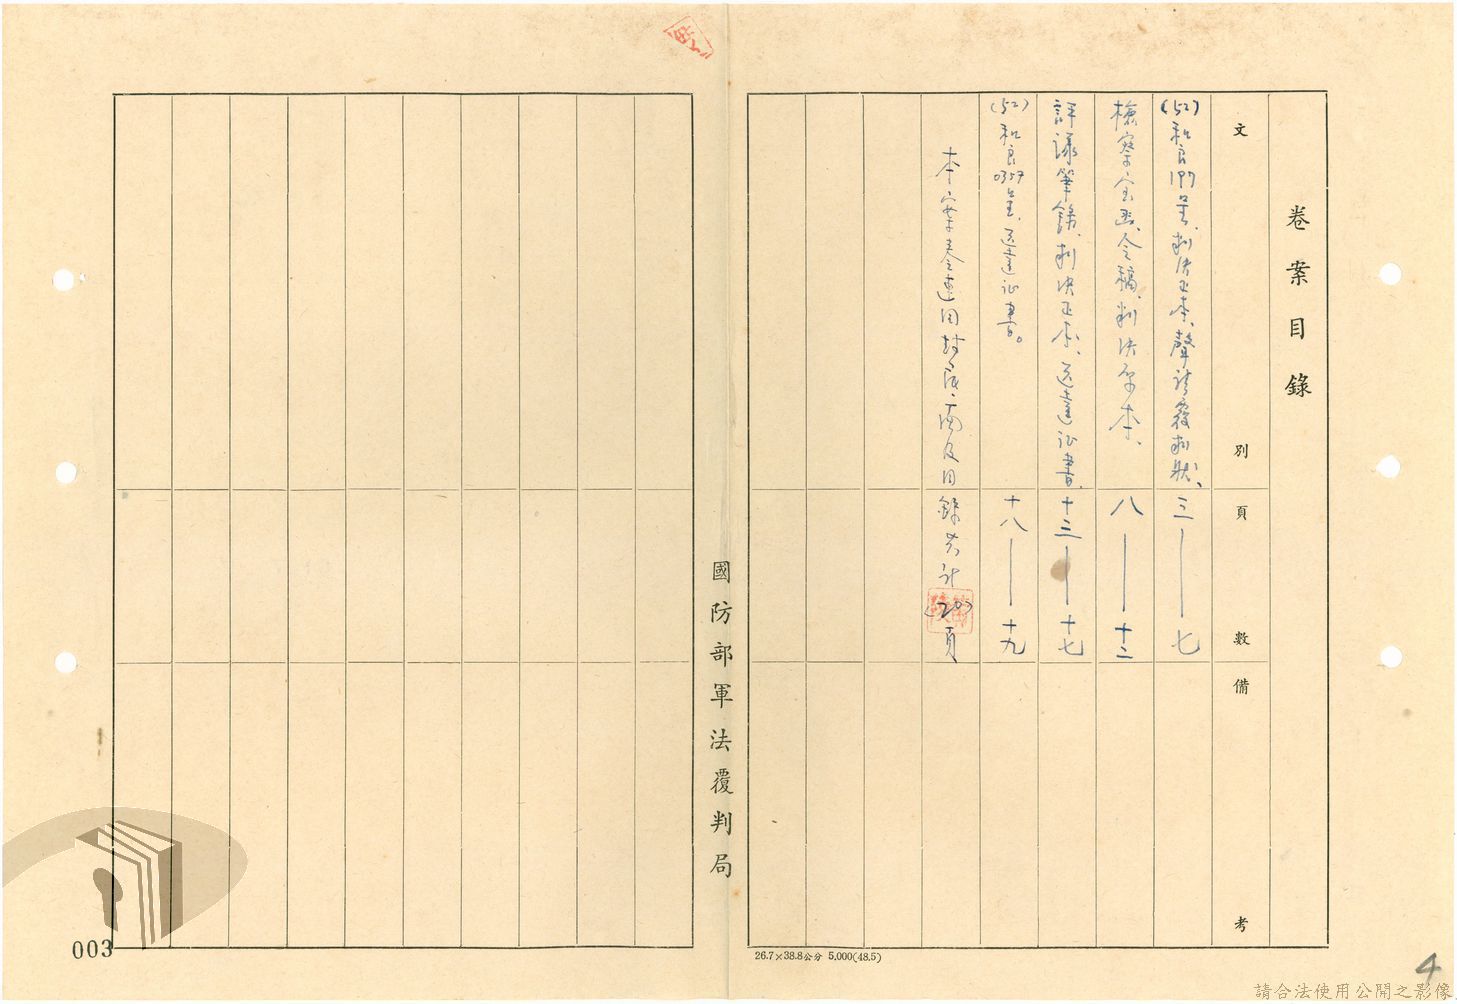 卷案目錄
文別
頁數
備考
(52)和良197呈、判決正本、聲請覆判狀、
三——七
檢察官函、令稿、判決原本、
八——十二
評議筆錄、判決正本、送達证書、
十三——十七
(52)和良0357呈、送達证書。
十八——十九
本案卷連同封底、面及目錄共計(20)頁
26.7×38.8公分 5,000(48.5)
國防部軍法覆判局
003
4
請合法使用公開之影像